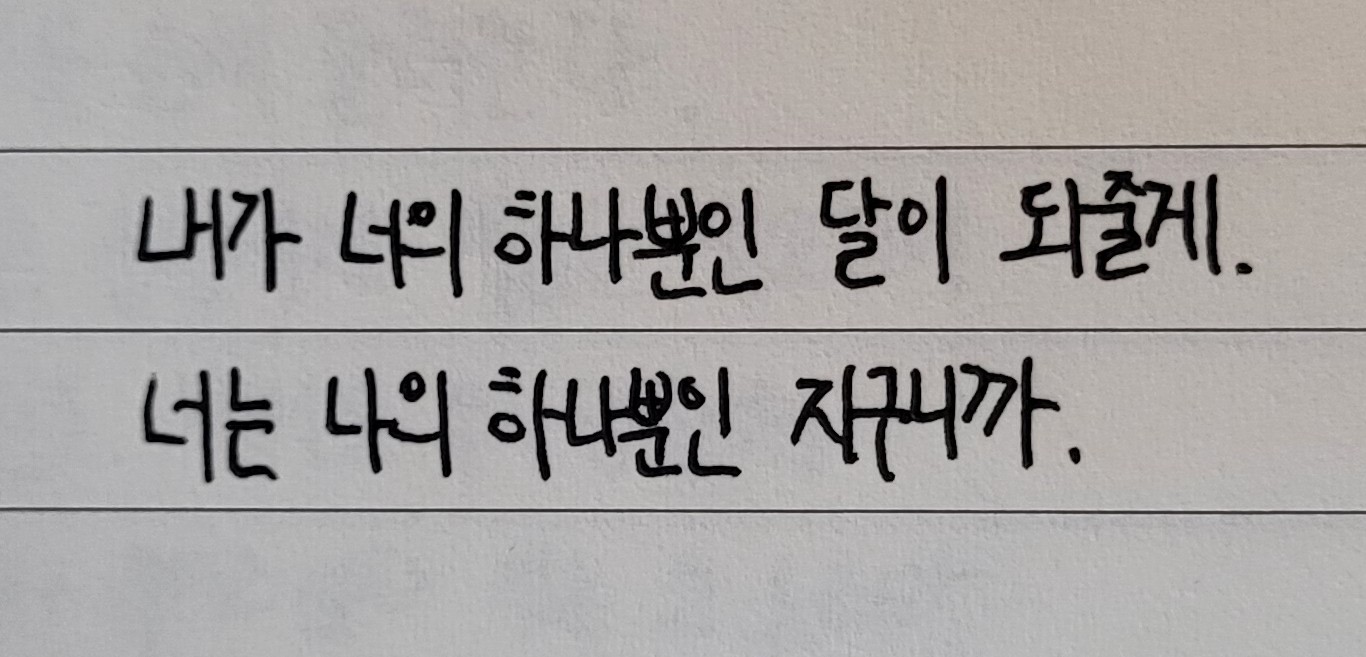 내가 너의 하나뿐인 달이 되줄게.
너는 나의 하나뿐인 지구니까.